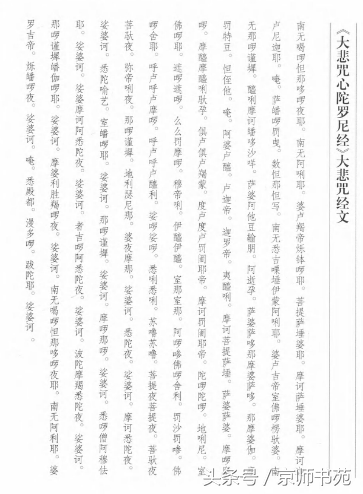 《大悲咒心陀罗尼经》大悲咒经文
南无喝啰怛那哆啰夜耶。南无阿唎耶。婆卢羯帝烁钵啰耶。菩提萨埵婆耶。摩诃萨埵婆耶。摩诃
卢尼迦耶。唵。萨皤啰罚曳。数怛那怛写。南无悉吉嘌埵伊蒙阿唎耶。婆卢吉帝室佛啰楞驮婆。南
无那啰谨墀。醯唎摩诃皤哆沙咩。萨婆阿他豆输朋。阿逝孕。萨婆萨哆那摩婆萨哆。那摩婆伽。摩
罚特豆。怛侄他。唵。阿婆卢醯。卢迦帝。迦罗帝。夷醯唎。摩诃菩提萨埵。萨婆萨婆。摩啰摩
啰。摩醯摩醯唎驮孕。俱卢俱卢羯蒙。度卢度卢罚阇耶帝。摩诃罚阇耶帝。陀啰陀啰。地唎尼。室
佛啰耶。遮啰遮啰。么么罚摩啰。穆帝唎。伊醯伊醯。室那室那。阿啰嘇佛啰舍利。罚沙罚嘇。佛
啰舍耶。呼卢呼卢摩啰。呼卢呼卢醯利。娑啰娑啰。悉唎悉唎。苏噜苏噜。菩提夜菩提夜。菩驮夜
菩驮夜。弥帝唎夜。那啰谨墀。地利瑟尼那。婆夜摩那。娑婆诃。悉陀夜。娑婆诃。摩诃悉陀夜。
娑婆诃。悉陀喻艺。室皤啰耶。娑婆诃。那啰谨墀。娑婆诃。摩啰那啰。娑婆诃。悉啰僧阿穆佉
耶。娑婆诃。娑婆摩诃阿悉陀夜。娑婆诃。者吉啰阿悉陀夜。娑婆诃。波陀摩羯悉陀夜。娑婆诃。
那啰谨墀皤伽啰耶。娑婆诃。摩婆利胜羯啰夜。娑婆诃。南无喝啰怛那哆啰夜耶。南无阿利耶。婆
罗吉帝。烁皤啰夜。娑婆诃。唵。悉殿都。漫多啰。跋陀耶。娑婆诃。
头条号 / 京师书苑